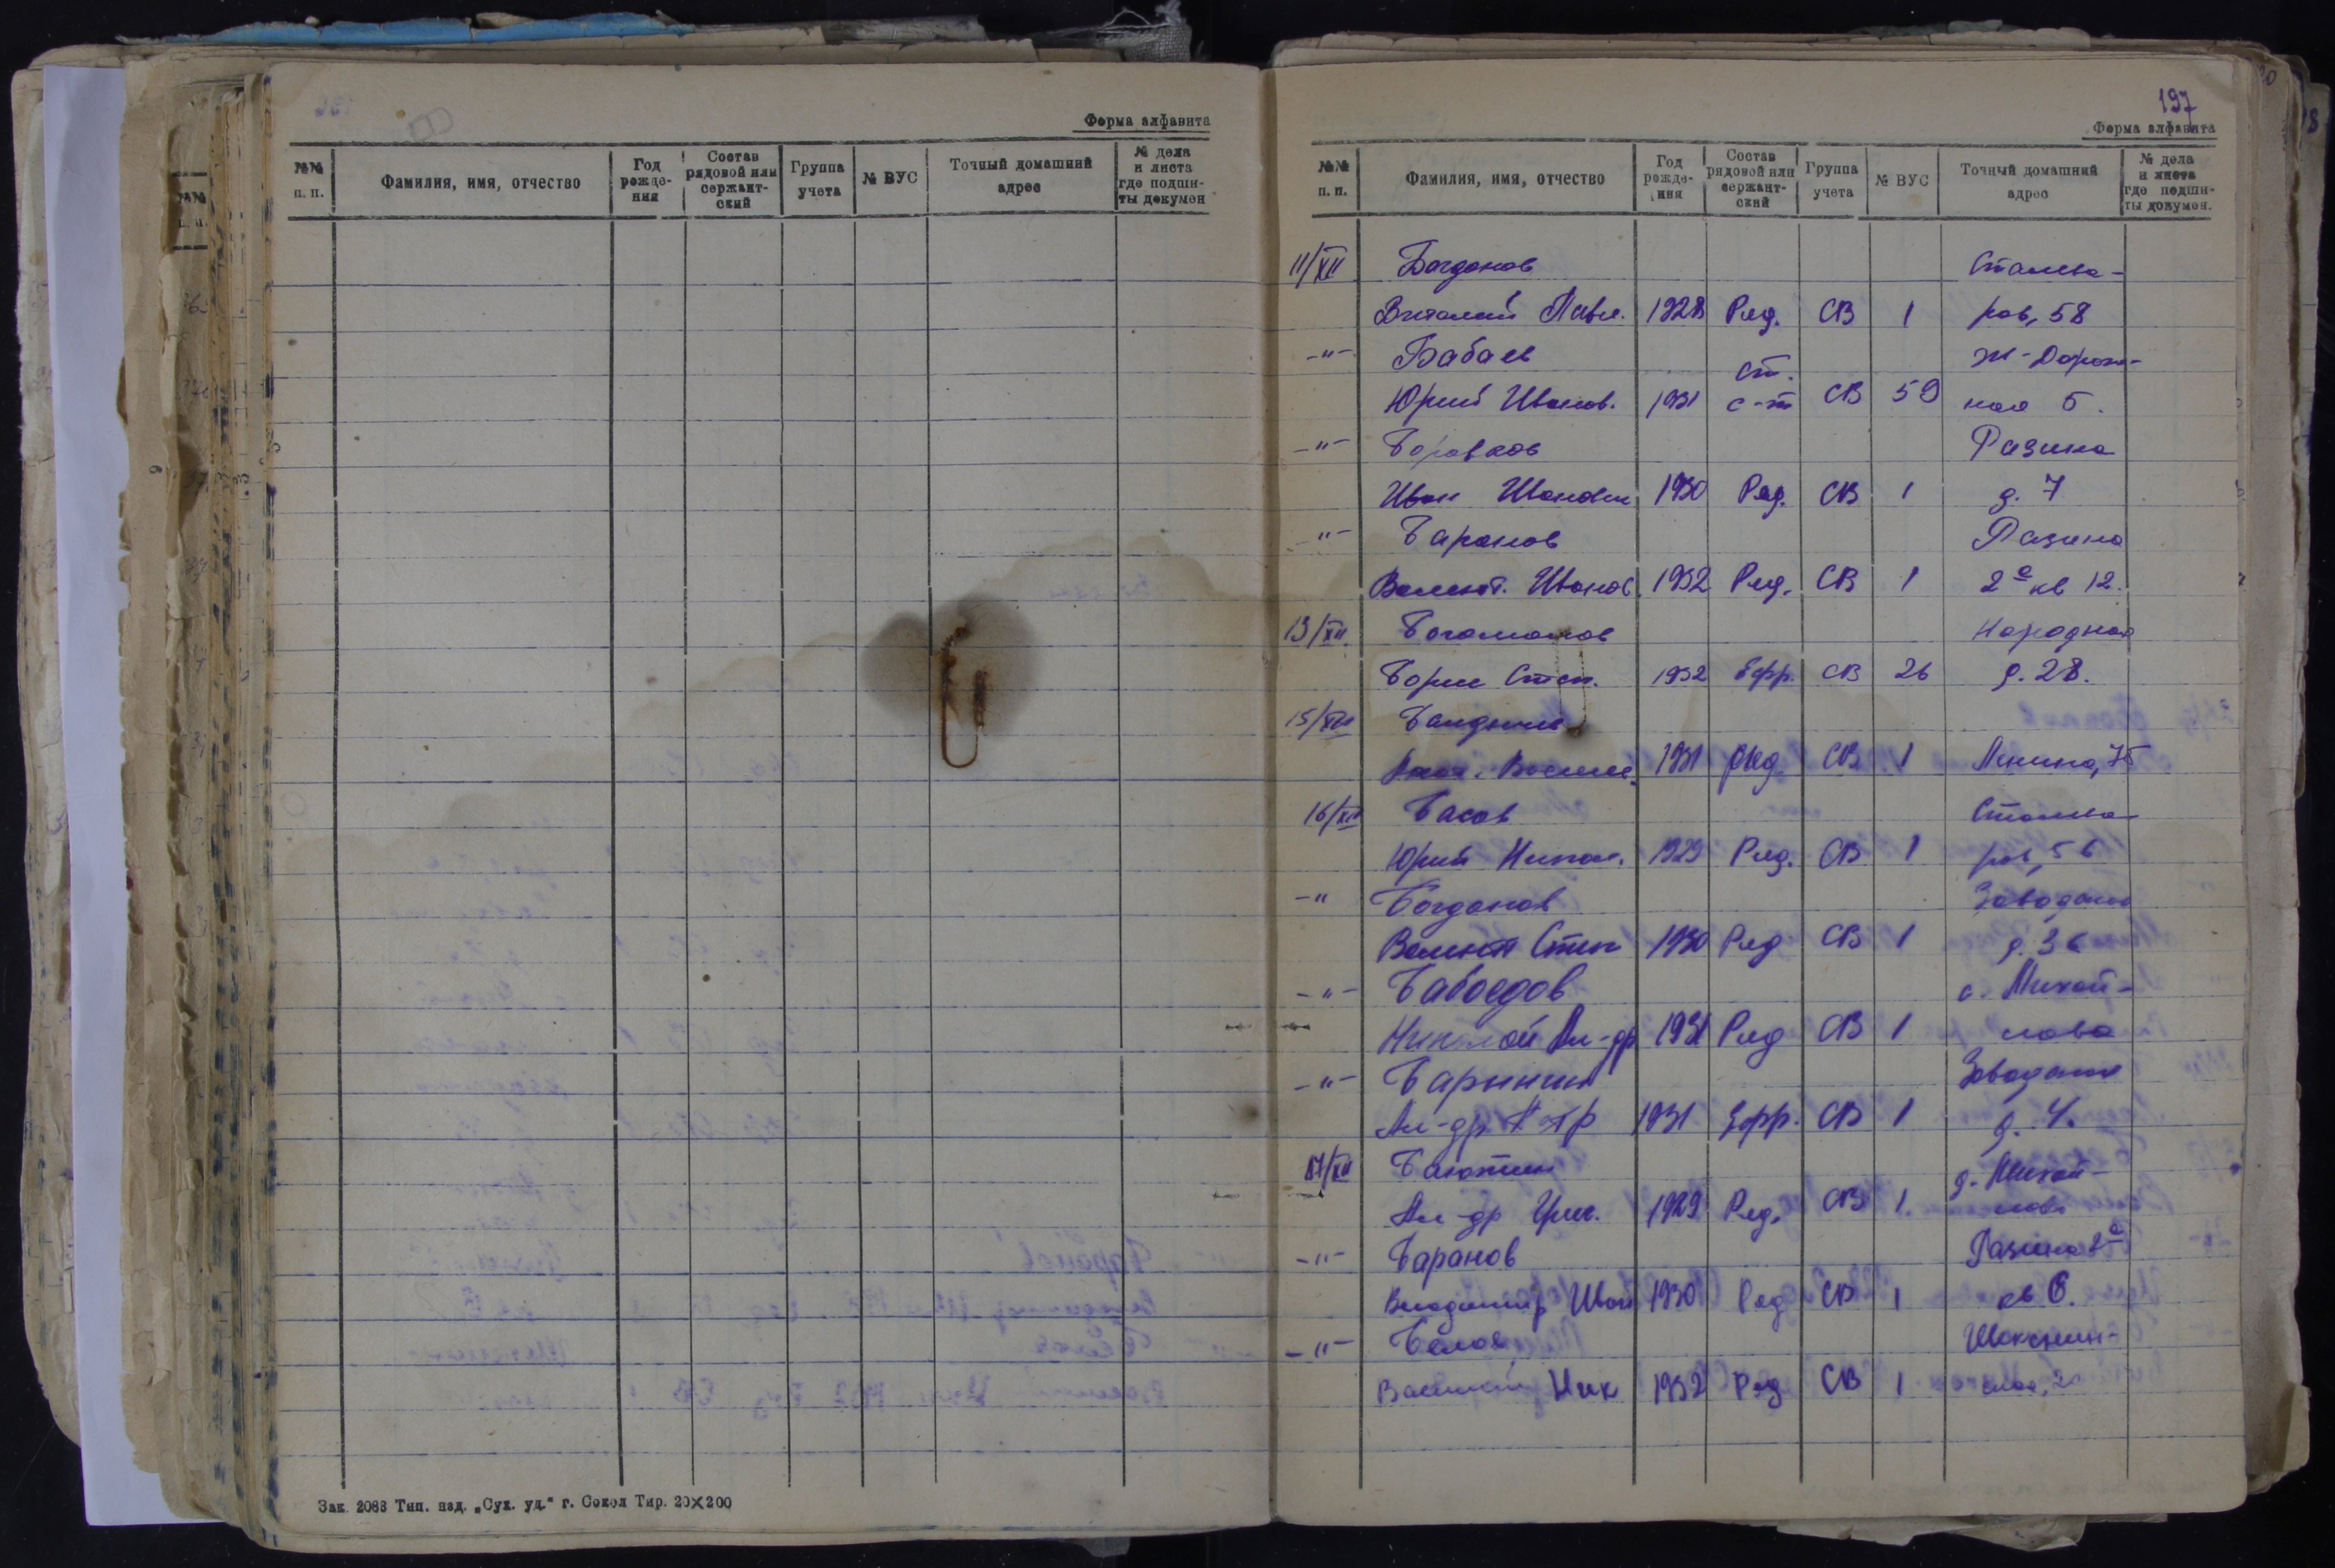 Форма алфавита
№№ п. п. Фамилия, имя, отчество Год рожде-ния Состав рядовой или сержант-ский Группа учета № ВУС Точный домашний адрес № дела и листа где подши-ты докумен
Зак. 2088 Тип. изд. „Сух. уд.“ г. Сокол Тир. 20×200
197
Форма алфавита
№№ п. п. Фамилия, имя, отчество Год рожде-ния Состав рядовой или сержант-ский Группа учета № ВУС Точный домашний адрес № дела и листа где подши-ты докумен.
11/XII Богданов Сталева-
Виталий Павл. 1928 Ряд. СВ 1 ров, 58
-"- Бабаев ст. Ж-Дорож-
Юрий Иванов. 1931 с-т СВ 59 ная 5.
-"- Боровков Разина
Иван Иванович 1930 Ряд. СВ 1 д. 7
-"- Баранов Разина
Валент. Иванов. 1932 Ряд. СВ 1 2а кв 12.
13/XII Богомолов Народная
Борис Степ. 1932 Ефр. СВ 26 д. 28.
15/XII
1931 Ряд СВ 1 Ленина, 75
16/XII Басов Сталева-
Юрий Никол. 1929 Ряд. СВ 1 ров, 56
-" Богданов Заводская
Валент Степ 1930 Ряд СВ 1 д. 36
-"- Бабоедов с. Михай-
Николай Ал-др 1931 Ряд СВ 1 лово
-"- Барынин Заводская
Ал-др Петр 1931 Ефр. СВ 1 д. 4.
17/XII д. Михай-
Ал-др 1929 Ряд. СВ 1. лово
-"- Баранов Разина 2а
Владимир Иван 1930 Ряд СВ 1 кв 6.
-"- Белов Шекснин-
Василий Ник 1932 Ряд СВ 1 ская,